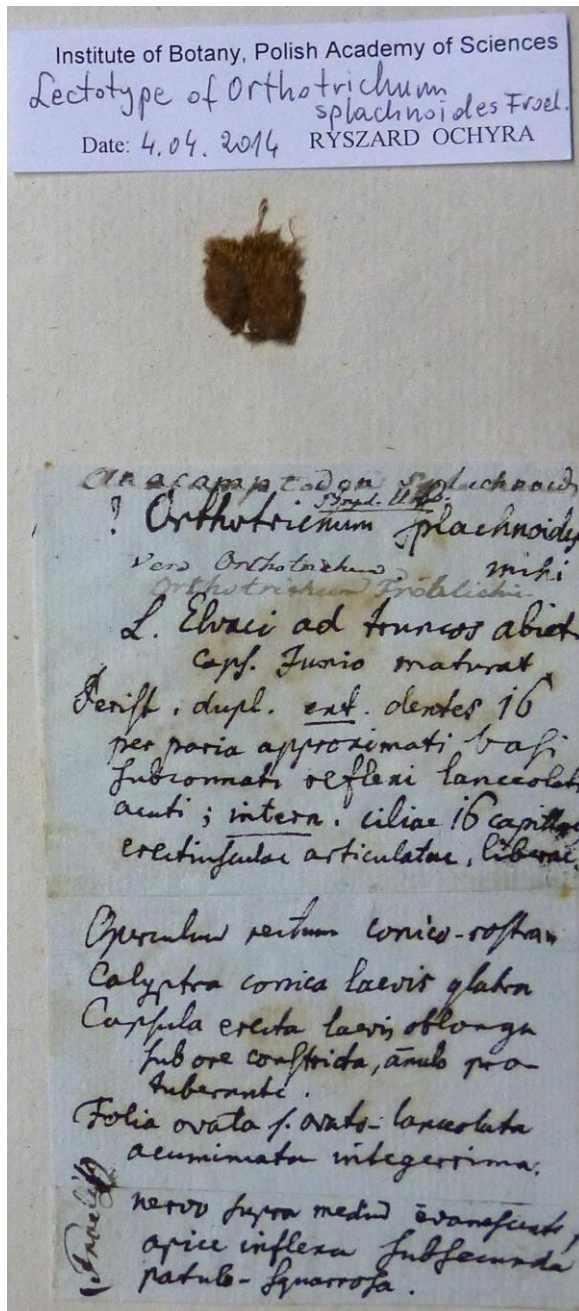 Institute of Botany, Polish Academy of Sciences
Lectotype of Orthotrichum
splachnoides Froel.
Date: 4.04.2014 RYSZARD OCHYRA
Anacamptodon splachnoid
? Orthotrichum splachnoides
vero Orthotrichum mihi
Orthotrichum Frölichii
L. Elvaci ad truncos abiet
caps. Junio maturat
Perist. dupl. ext. dentes 16
per paria approximati basi
subconnati reflexi lanceolati
acuti; intern. ciliae 16 capillar
erectiusculae articulatae, liberae.
Operculum rectum conico-rostra
Calyptra conica laevis glabra
Capsula erecta laevis oblonga
sub ore constricta, anulo pro-
tuberante.
Folia ovata s. ovato-lanceolata
acuminata integerrima.
nervo supra mediū evanescente,
apice inflexa subsecunda
patulo-squarrosa.
(Froelich